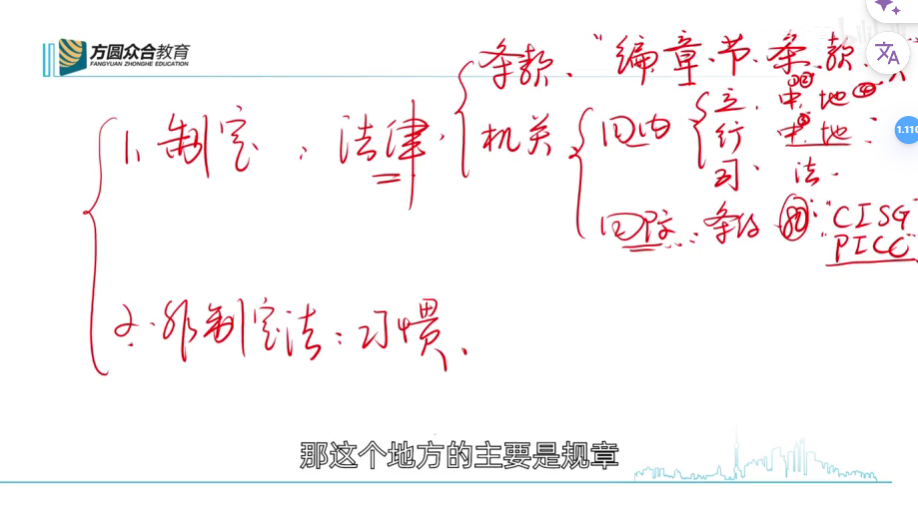 方圆众合教育
FANGYUAN ZHONGHE EDUCATION
条款、"编.章.节.条.款.
1.制定:法律.
机关
国内
立.中.地
行 中.地:
司.法.
国际:条约
"CISG"
"PICC"
2.非制定法:习惯.
那这个地方的主要是规章
1.11